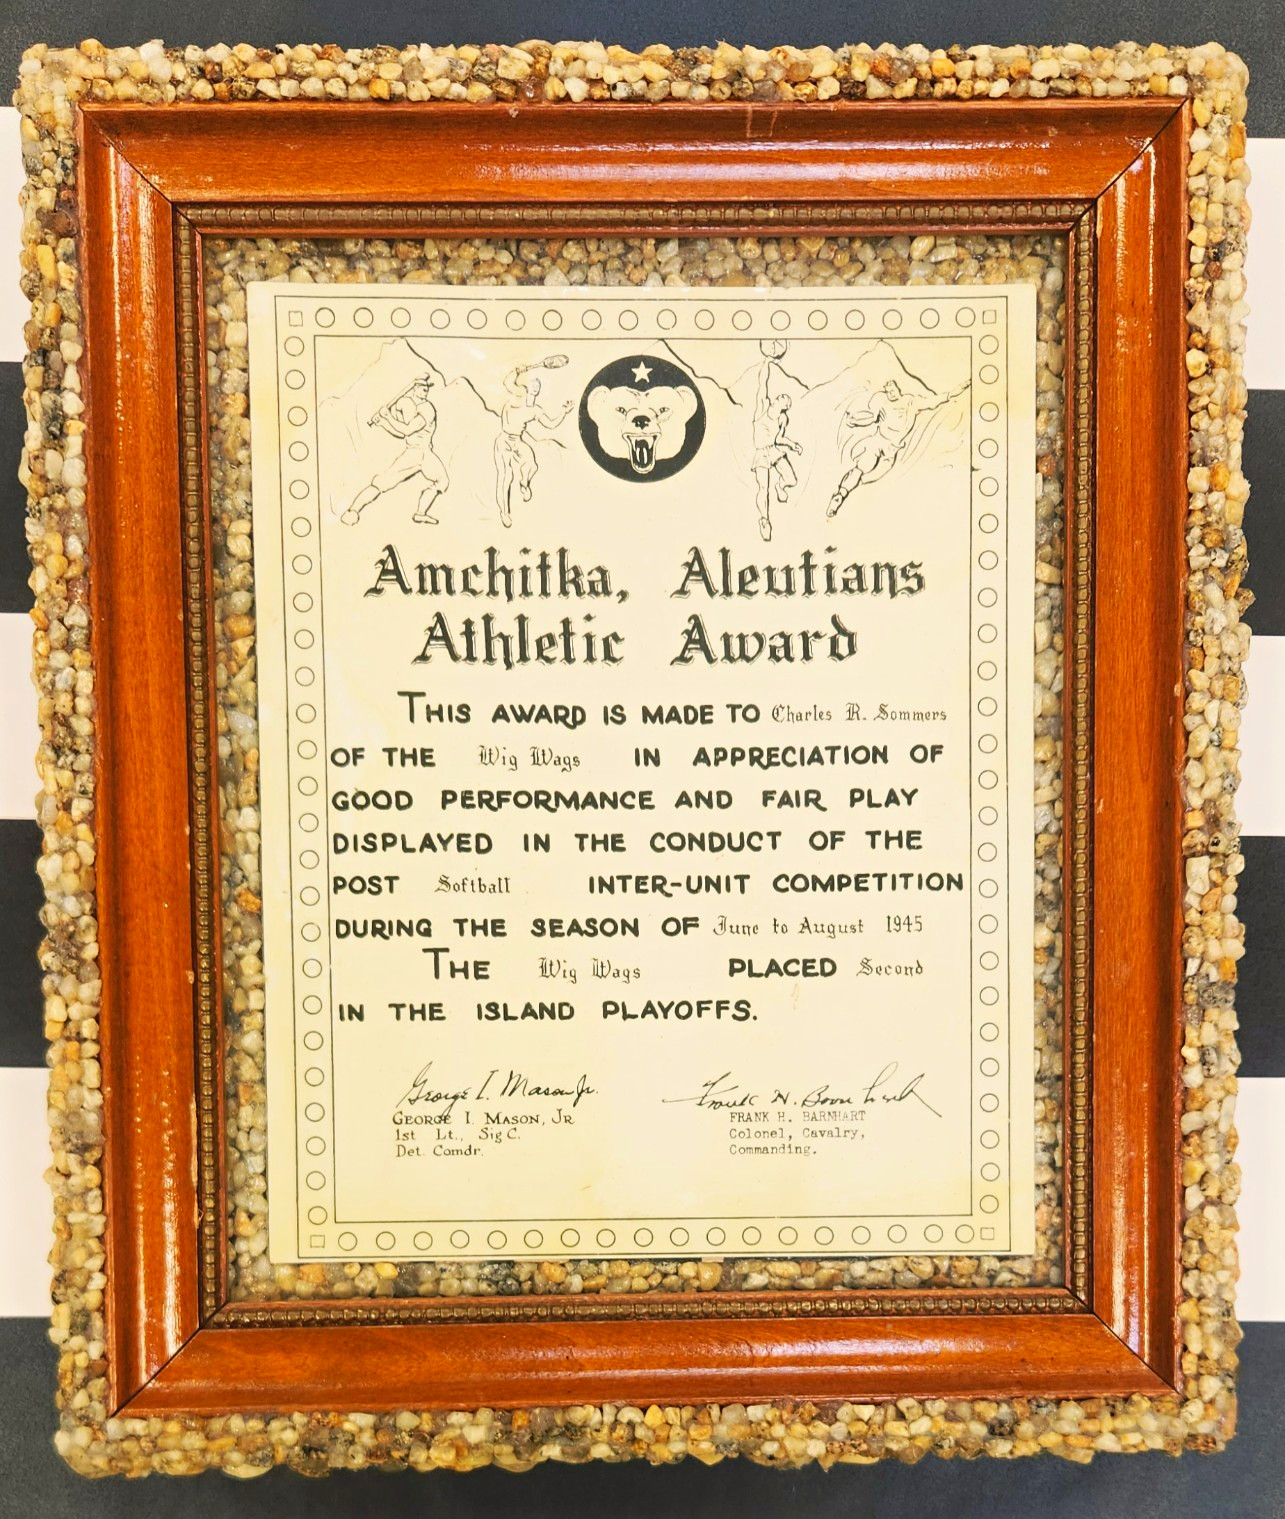 Amchitka, Aleutians
Athletic Award
THIS AWARD IS MADE TO Charles R. Sommers
OF THE Wig Wags IN APPRECIATION OF
GOOD PERFORMANCE AND FAIR PLAY
DISPLAYED IN THE CONDUCT OF THE
POST Softball INTER-UNIT COMPETITION
DURING THE SEASON OF June to August 1945
THE Wig Wags PLACED Second
IN THE ISLAND PLAYOFFS.
George I. Mason Jr.
GEORGE I. MASON, JR
1st Lt., Sig C.
Det. Comdr.
Frank H. Barnhart
FRANK H. BARNHART
Colonel, Cavalry,
Commanding.